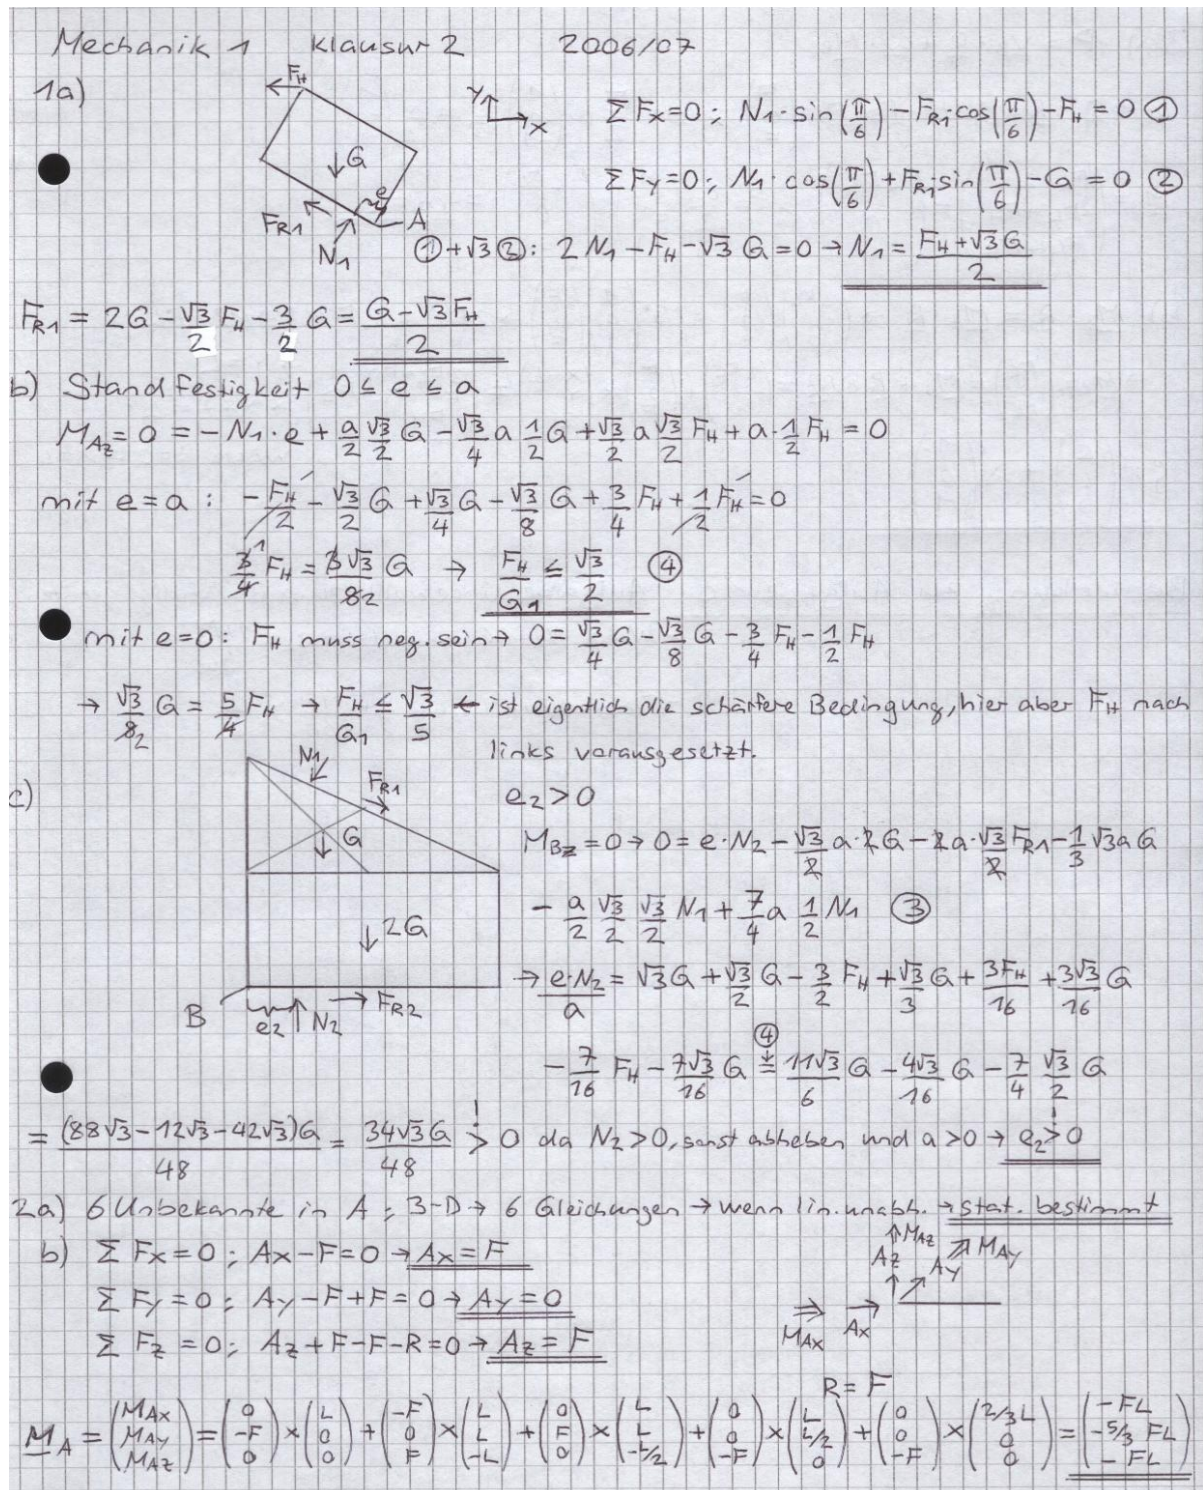 Mechanik 1 Klausur 2 2006/07
1a)
F_H
G
e
A
F_R1
N1
y
x
ΣFx=0; N1·sin(π/6)-F_R1·cos(π/6)-F_H = 0 ①
ΣFy=0; N1·cos(π/6)+F_R1·sin(π/6)-G = 0 ②
①+√3②: 2N1-F_H-√3 G=0 → N1 = (F_H+√3G)/2
F_R1 = 2G - √3/2 F_H - 3/2 G = (G-√3 F_H)/2
b) Standfestigkeit 0 ≤ e ≤ a
M_Az = 0 = -N1·e + a/2 √3/2 G - √3/4 a 1/2 G + √3/2 a √3/2 F_H + a·1/2 F_H = 0
mit e=a: -F_H/2 - √3/2 G + √3/4 G - √3/8 G + 3/4 F_H + 1/2 F_H = 0
3/4 F_H = 3√3/8 G → F_H/G1 ≤ √3/2 ④
mit e=0: F_H muss neg. sein → 0 = √3/4 G - √3/8 G - 3/4 F_H - 1/2 F_H
→ √3/8 G = 5/4 F_H → F_H/G1 ≤ √3/5 ← ist eigentlich die schärfere Bedingung, hier aber F_H nach
links vorausgesetzt.
c)
N1
F_R1
G
2G
B
e2
N2
F_R2
e2 > 0
M_Bz = 0 → 0 = e·N2 - √3/2 a·2G - 2a·√3/2 F_R1 - 1/3 √3 a G
- a/2 √3/2 √3/2 N1 + 7/4 a 1/2 N1 ③
→ e·N2/a = √3 G + √3/2 G - 3/2 F_H + √3/3 G + 3F_H/16 + 3√3/16 G
- 7/16 F_H - 7√3/16 G =④ 11√3/6 G - 4√3/16 G - 7/4 √3/2 G
= (88√3-12√3-42√3)G/48 = 34√3 G/48 >! 0 da N2 > 0, sonst abheben und a > 0 → e2 >! 0
2a) 6 Unbekannte in A; 3-D → 6 Gleichungen → wenn lin. unabh. → stat. bestimmt
b) ΣFx = 0; Ax - F = 0 → Ax = F
ΣFy = 0; Ay - F + F = 0 → Ay = 0
ΣFz = 0; Az + F - F - R = 0 → Az = F
M_Az
Az
Ay
M_Ay
M_Ax
Ax
R = F
M_A = (M_Ax M_Ay M_Az) = (0 -F 0) × (L 0 0) + (-F 0 F) × (L L -L) + (0 F 0) × (L L -L/2) + (0 0 -F) × (L L/2 0) + (0 0 -F) × (2/3L 0 0) = (-FL -5/3 FL -FL)